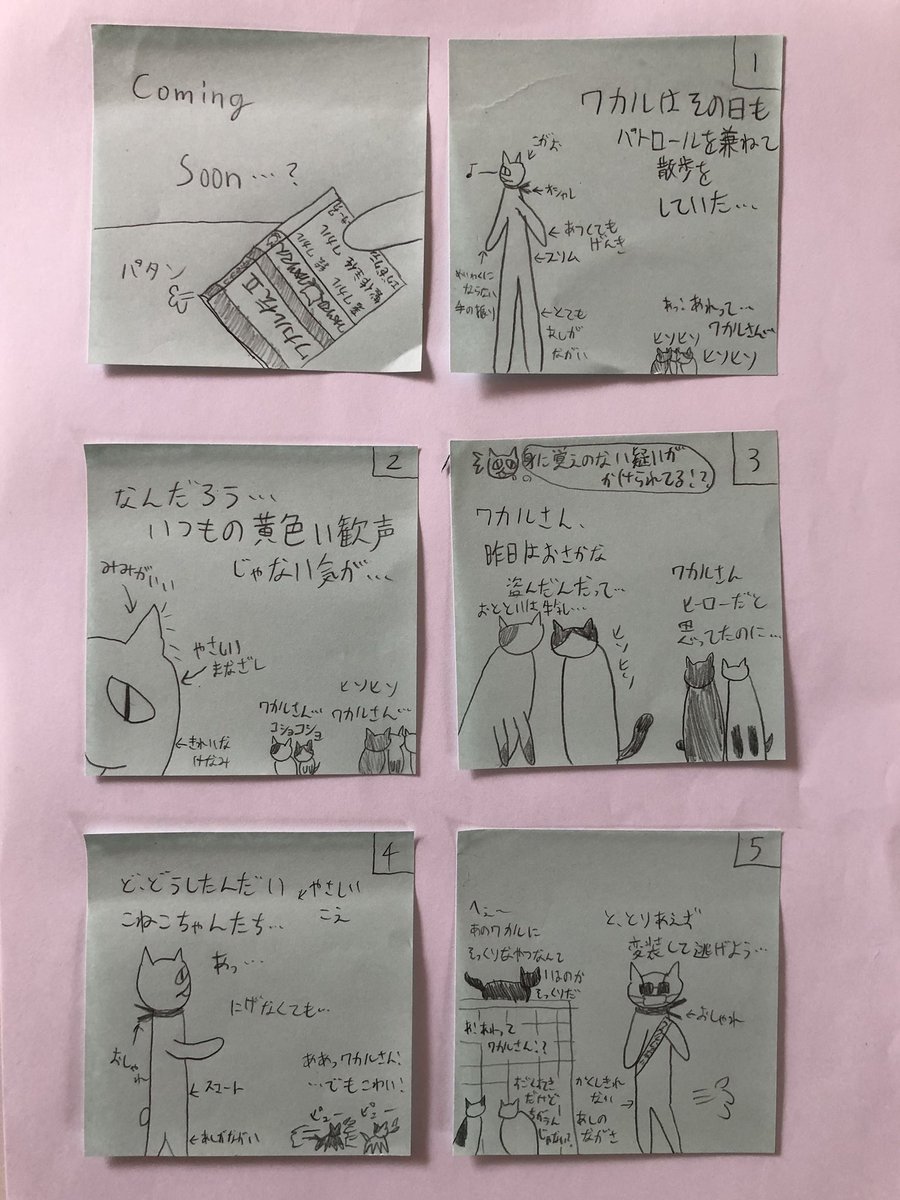 Coming
Soon…?
パタン
ワカル伝II
1
ワカルはその日も
パトロールを兼ねて
散歩を
していた…
こがお
オシャレ
あつくても
げんき
スリム
めいわくに
ならない
手の振り
とても
あしが
ながい
あっ、あれって…
ワカルさん…
ヒソヒソ
ヒソヒソ
2
なんだろう…
いつもの黄色い歓声
じゃない気が…
みみがいい
やさしい
まなざし
きれいな
けなみ
ワカルさん…
コショコショ
ヒソヒソ
ワカルさん…
3
身に覚えのない疑いが
かけられてる!?
ワカルさん、
昨日はおさかな
盗んだんだって…
おとといは牛乳…
ヒソヒソ
ワカルさん
ヒーローだと
思ってたのに…
4
ど、どうしたんだい
こねこちゃんたち…
やさしい
こえ
あっ…
にげなくても…
おしゃれ
スマート
あしがながい
ああっワカルさん!
…でもこわい!
ピュー
ピュー
5
へぇ〜
あのワカルに
そっくりなやつなんて
いるのか
そっくりだ
と、とりあえず
変装して逃げよう…
おしゃれ
あ!あれって
ワカルさん!?
だけど
ちがうん
じゃない?
かくしきれ
ない
あしの
ながさ